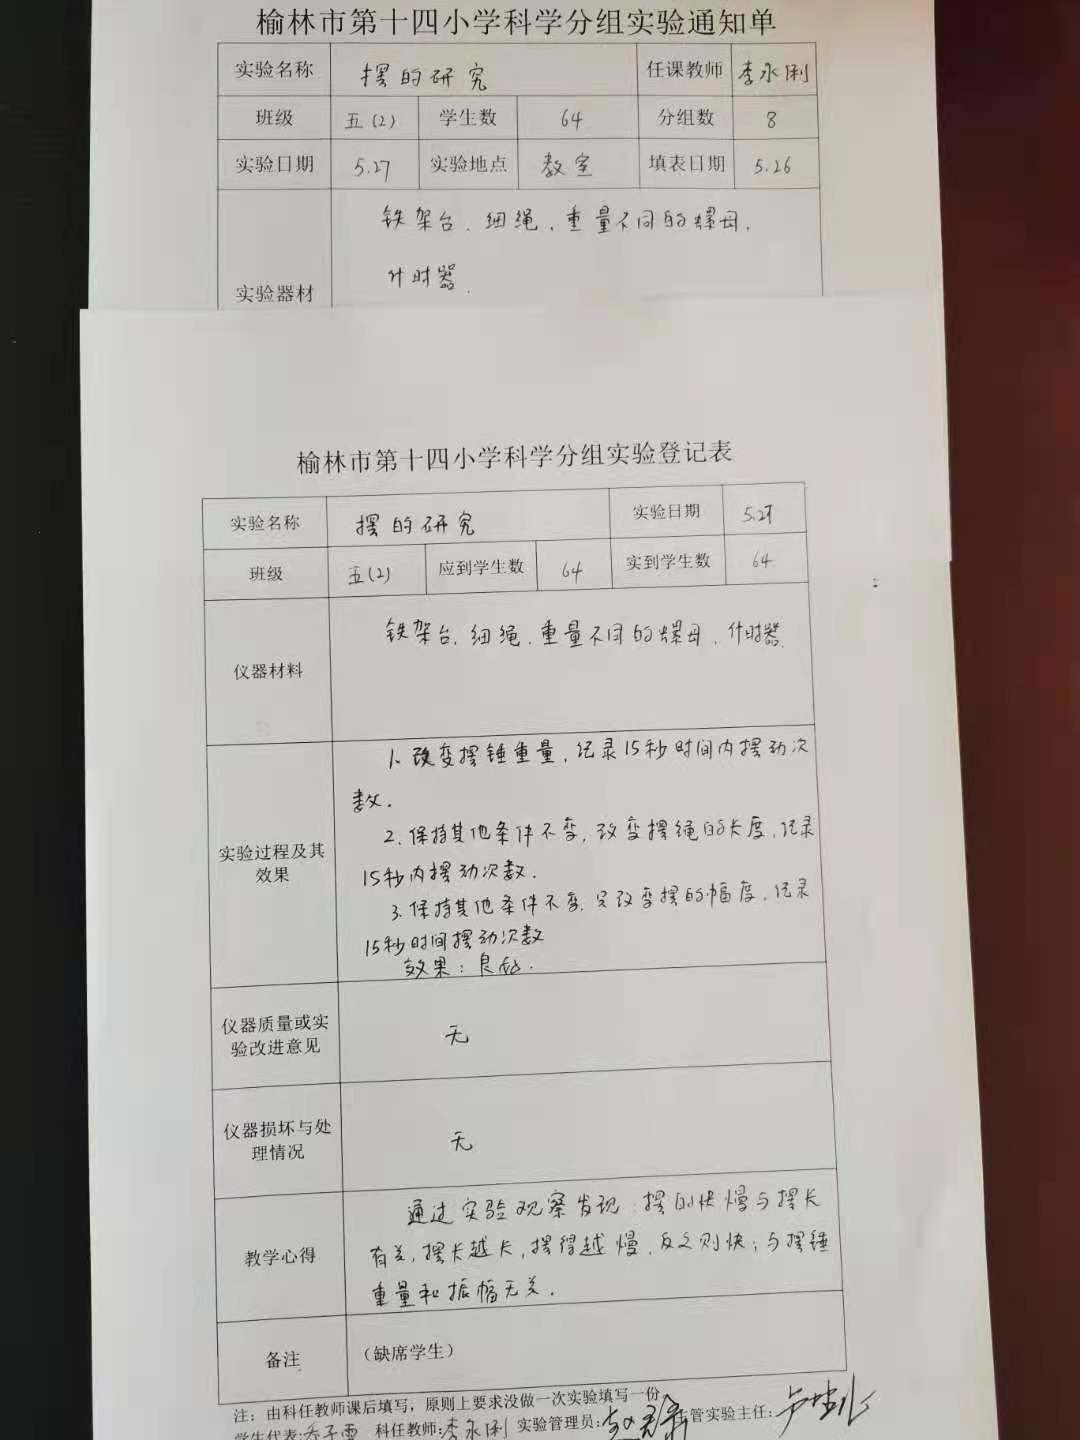 榆林市第十四小学科学分组实验通知单
实验名称 摆的研究 任课教师 李永利
班级 五(2) 学生数 64 分组数 8
实验日期 5.27 实验地点 教室 填表日期 5.26
实验器材
铁架台、细绳、重量不同的螺母、
计时器.
榆林市第十四小学科学分组实验登记表
实验名称 摆的研究 实验日期 5.27
班级 五(2) 应到学生数 64 实到学生数 64
仪器材料 铁架台、细绳、重量不同的螺母、计时器
实验过程及其
效果
1.改变摆锤重量,记录15秒时间内摆动次
数.
2.保持其他条件不变,改变摆绳的长度,记录
15秒内摆动次数.
3.保持其他条件不变,只改变摆的幅度,记录
15秒时间摆动次数
效果:良好.
仪器质量或实
验改进意见
无
仪器损坏与处
理情况
无
教学心得
通过实验观察发现:摆的快慢与摆长
有关,摆长越长,摆得越慢,反之则快;与摆锤
重量和振幅无关.
备注 (缺席学生)
注:由科任教师课后填写,原则上要求没做一次实验填写一份
学生代表: 科任教师:李永利 实验管理员: 管实验主任: